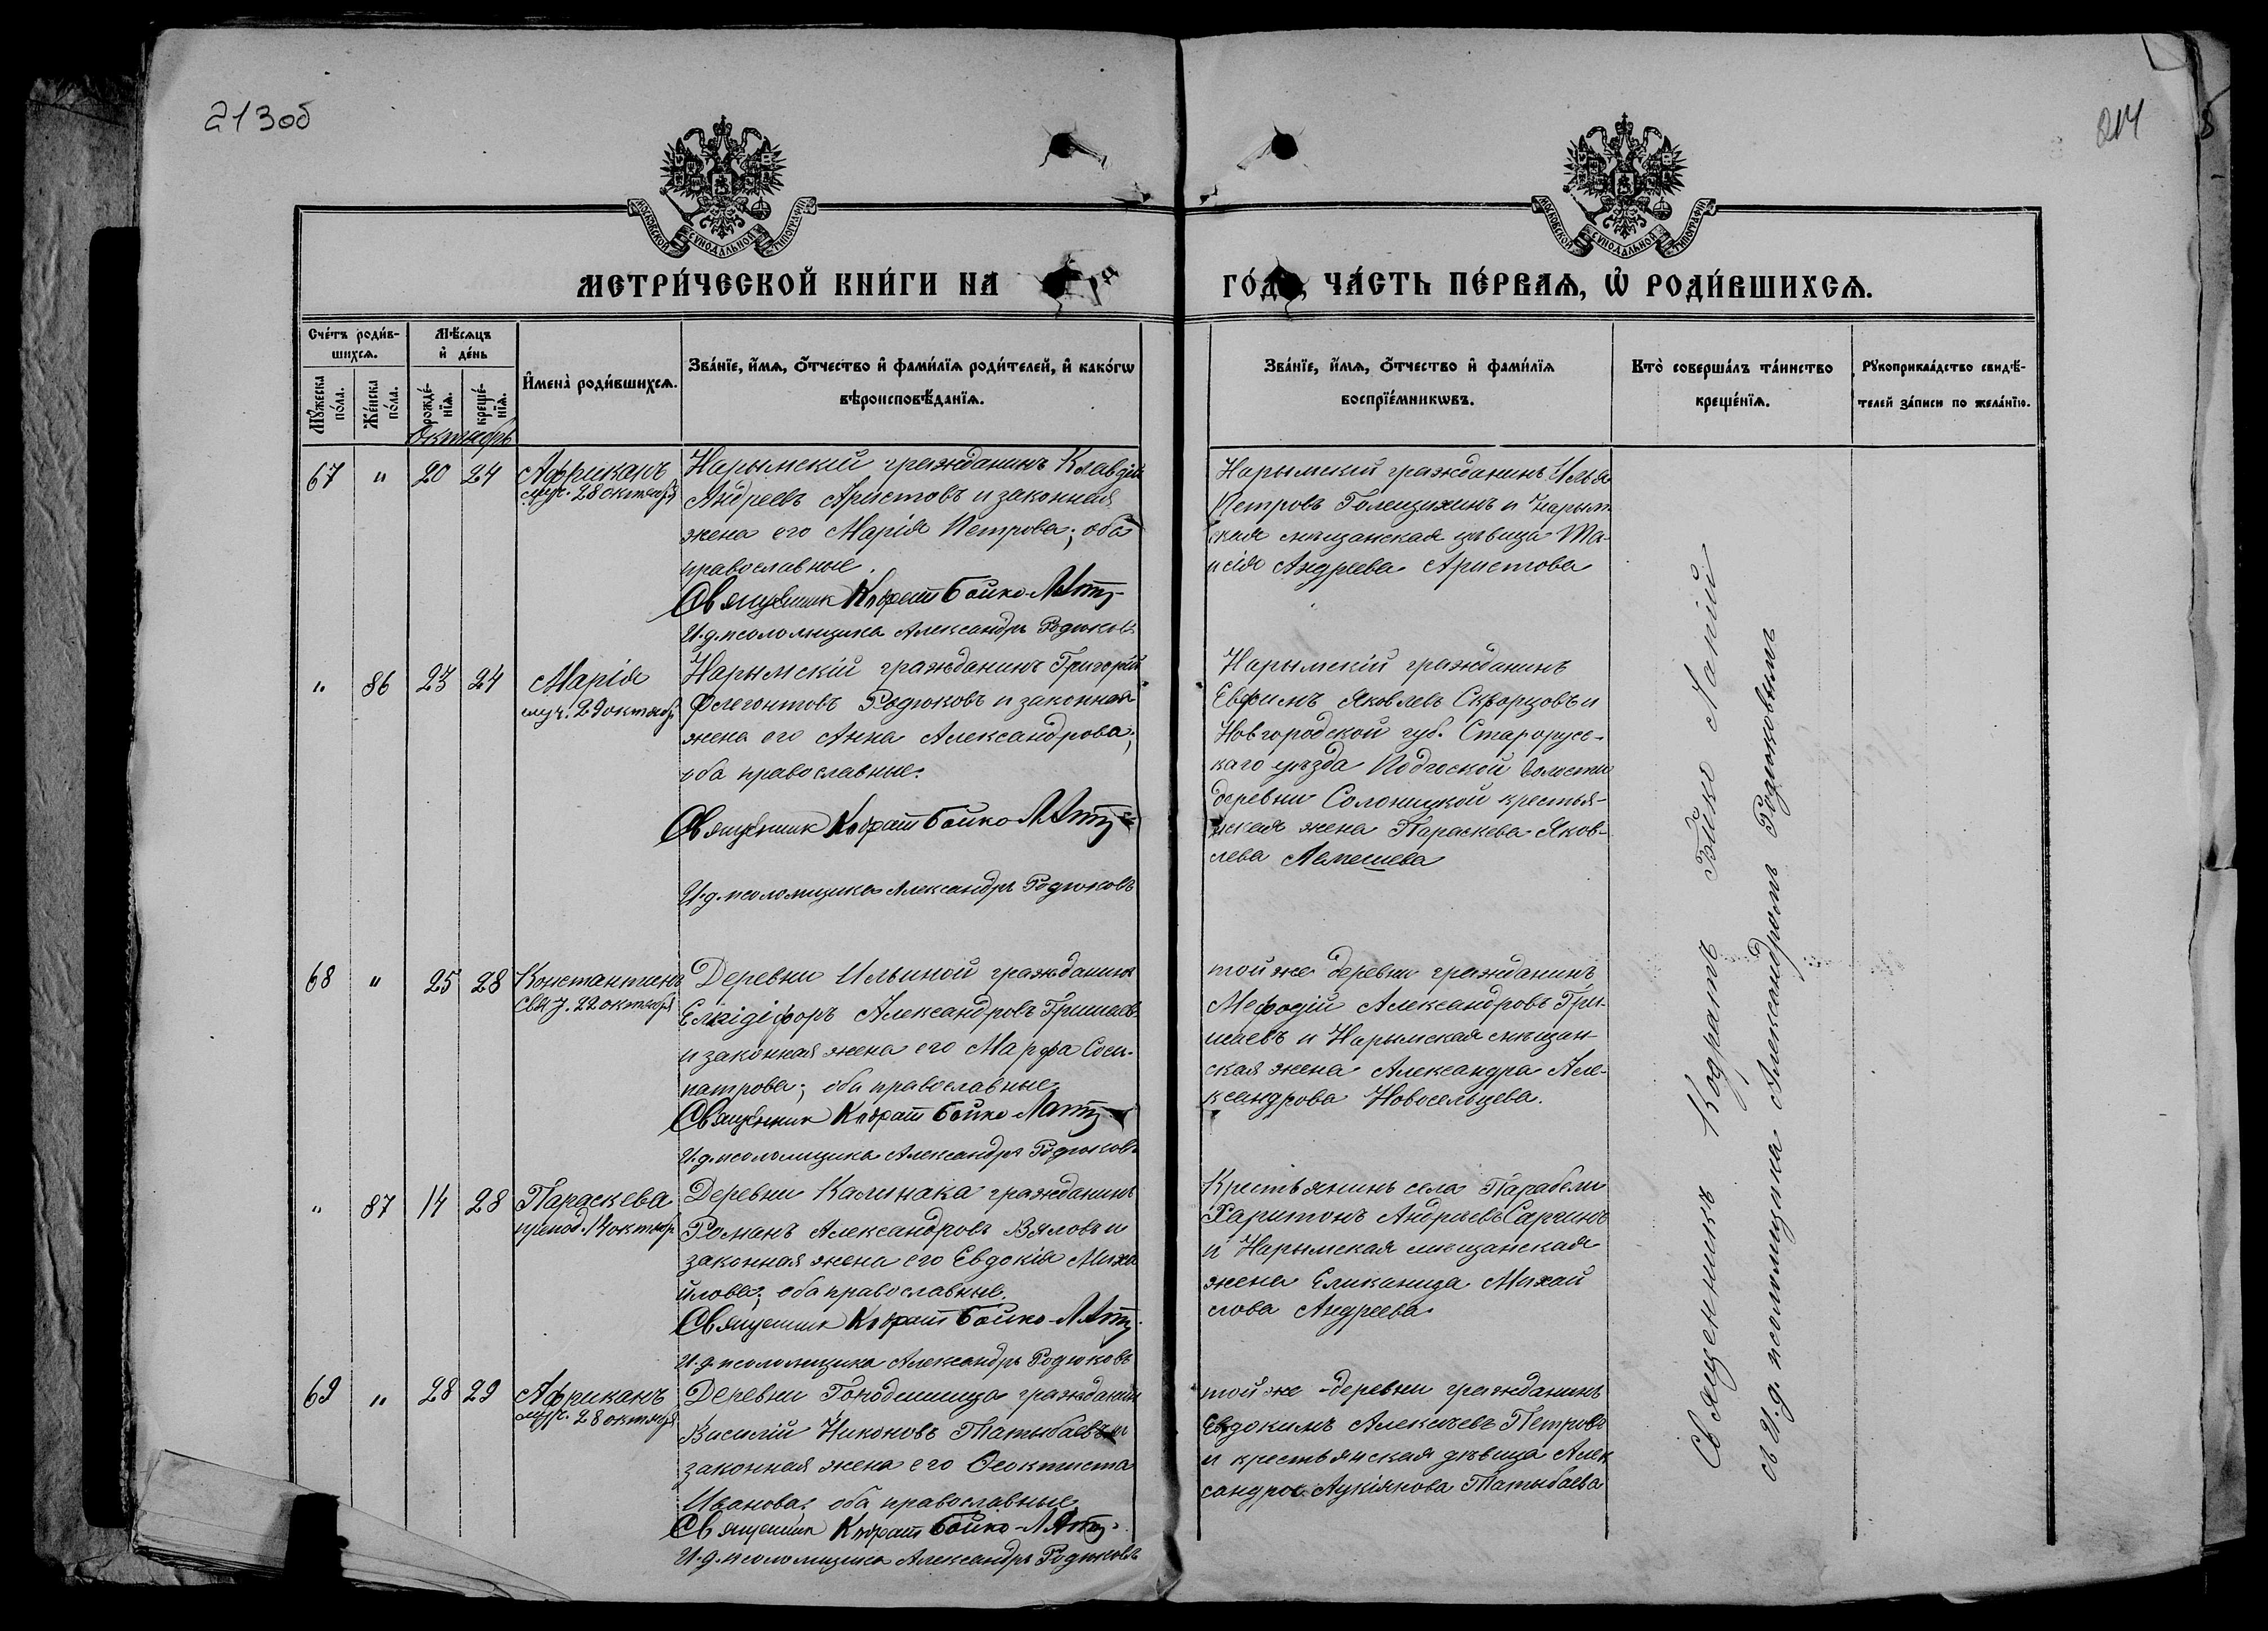 213об
214
МОСКОВСКОЙ СѴНОДАЛЬНОЙ ТИПОГРАФІИ
МОСКОВСКОЙ СѴНОДАЛЬНОЙ ТИПОГРАФІИ
МЕТРИ́ЧЕСКОЙ КНИ́ГИ НА
ГО́ДЪ, ЧА́СТЬ ПЕ́РВАѦ, Ѡ҆ РОДИ́ВШИХСѦ.
Сче́тъ роди́в-
шихсѧ.
Мѣ́сѧцъ
и҆ де́нь
Мꙋ́жеска по́ла.
Же́нска по́ла.
рожде́-
нїѧ.
креще́-
нїѧ.
И҆мена̀ роди́вшихсѧ.
Зва́нїе, и҆́мѧ, ѻ҆́тчество и҆ фами́лїѧ роди́телей, и҆ како́гѡ
вѣроисповѣ́данїѧ.
Зва́нїе, и҆́мѧ, ѻ҆́тчество и҆ фами́лїѧ
воспрїе́мникѡвъ.
Кто̀ соверша́лъ та́инство
креще́нїѧ.
Рꙋкоприкла́дство свидѣ́-
телей за́писи по жела́нїю.
Октябрь
67 " 20 24
Африканъ
муч. 28 октября
Нарымскій гражданинъ Клавдій
Андреевъ Аристовъ и законная
жена его Марія Петрова; оба
православные.
Священник Кодрат Бойко-
И.д. псаломщика Александръ Родюковъ
Нарымскій гражданинъ Илья
Петровъ Голещихинъ и Нарым
ская мѣщанская дѣвица Та-
исія Андреева Аристова
" 86 23 24
Марія
муч. 29 октябр
Нарымскій гражданинъ Григорій
Флегонтовъ Родюковъ и законная
жена его Анна Александрова;
оба православные.
Священник Кодрат Бойко-
И.д. псаломщика Александръ Родюковъ
Нарымскій гражданинъ
Евфимъ Яковлевъ Скворцовъ и
Новгородской губ. Старорус-
каго уѣзда Подгоской волости
деревни Солоницкой крестья-
нская жена Параскева Яков-
лева Лемешева
68 " 25 28
Константинъ
22 октября
Деревни Ильиной гражданинъ
Елпідіфоръ Александровъ Гришаевъ
и законная жена его Марфа Соси-
патрова; оба православные.
Священник Кодрат Бойко
И.д. псаломщика Александръ Родюковъ
той же деревни гражданинъ
Мефодій Александровъ Гри-
шаевъ и Нарымская мѣщан-
ская жена Александра Але-
ксандрова Новосельцева.
" 87 14 28
Параскева
препод. 14 октябр
Деревни Калинака гражданинъ
Романъ Александровъ Вяловъ и
законная жена его Евдокія Миха
йлова; оба православные.
Священник Кодрат Бойко-
И.д. псаломщика Александръ Родюковъ
Крестьянинъ села Парабели
Харитонъ Андреевъ Саргинъ
и Нарымская мѣщанская
жена Еликанида Михай
лова Андреева
69 " 28 29
Африканъ
муч. 28 октября
Деревни Городишща гражданинъ
Василій Никоновъ Татыбаевъ и
законная жена его Феоктиста
Иванова; оба православные
Священник Кодрат Бойко-
И.д. псаломщика Александръ Родюковъ
той же деревни гражданинъ
Евдокимъ Алексѣевъ Петровъ
и крестьянская дѣвица Алек
сандра Лукіянова Татыбаева
Священникъ Кодратъ Бойко Лапій
съ И.д. псаломщика Александромъ Родюковымъ